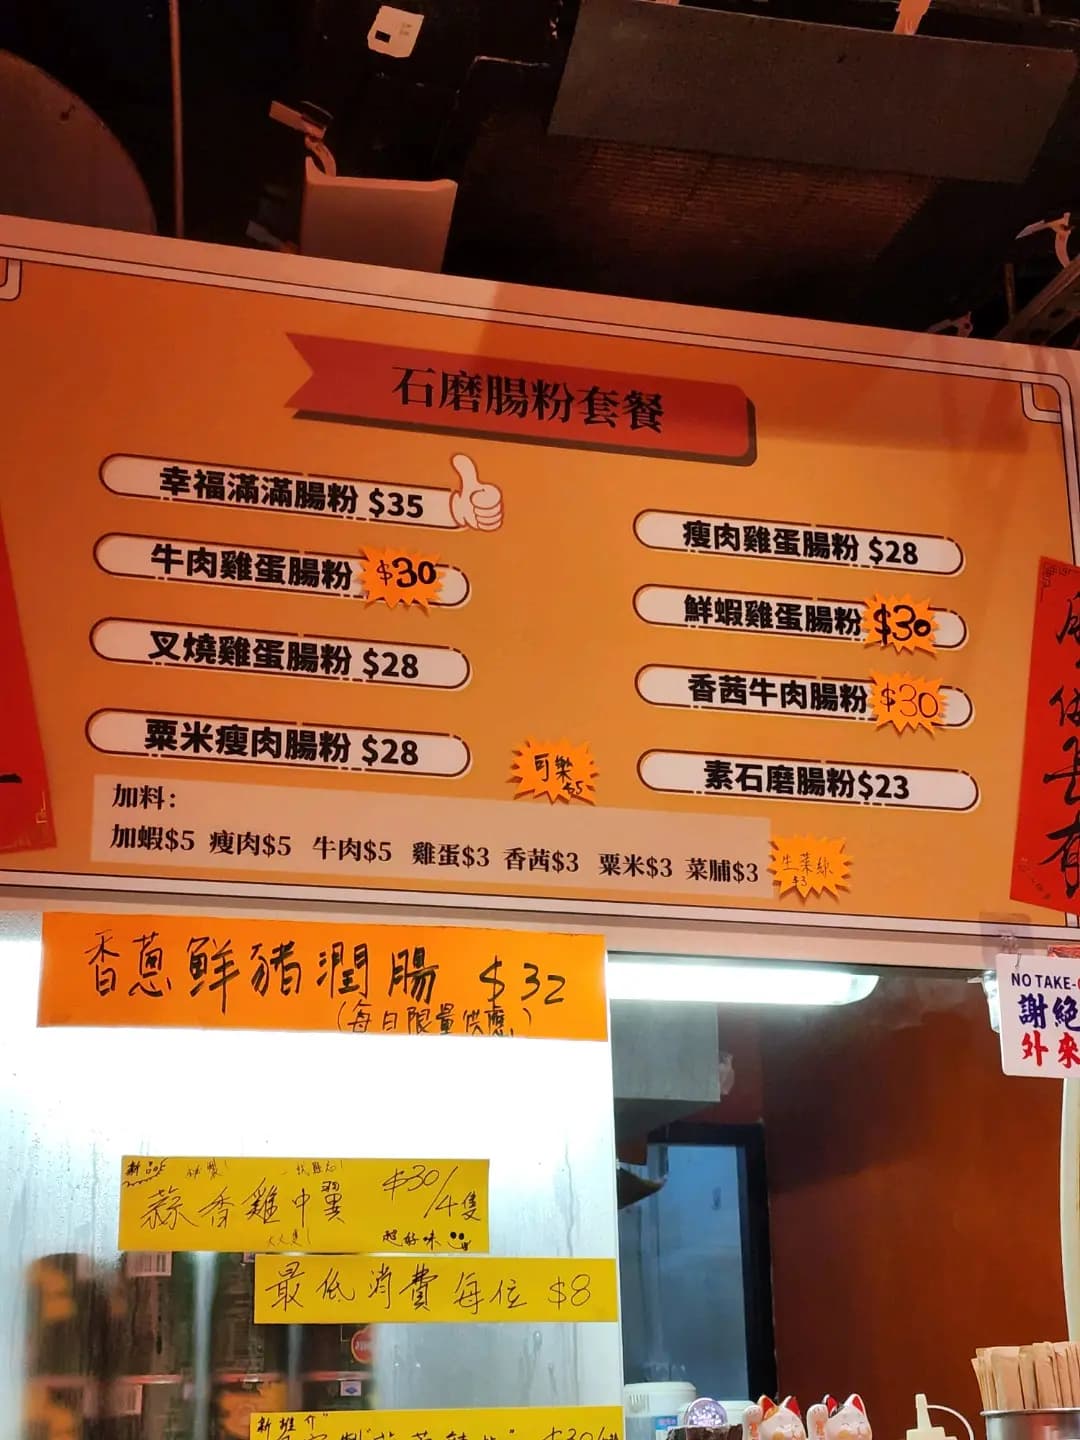 石磨腸粉套餐
幸福滿滿腸粉 $35
牛肉雞蛋腸粉 $30
叉燒雞蛋腸粉 $28
粟米瘦肉腸粉 $28
瘦肉雞蛋腸粉 $28
鮮蝦雞蛋腸粉 $30
香茜牛肉腸粉 $30
素石磨腸粉$23
可樂
$5
加料：
加蝦$5 瘦肉$5 牛肉$5 雞蛋$3 香茜$3 粟米$3 菜脯$3
生菜絲
$3
香蔥鮮豬潤腸 $32
(每日限量供應)
新品
蒜香雞中翼 $30/4隻
超好味
最低消費每位 $8
新推介
NO TAKE-
謝絕
外來